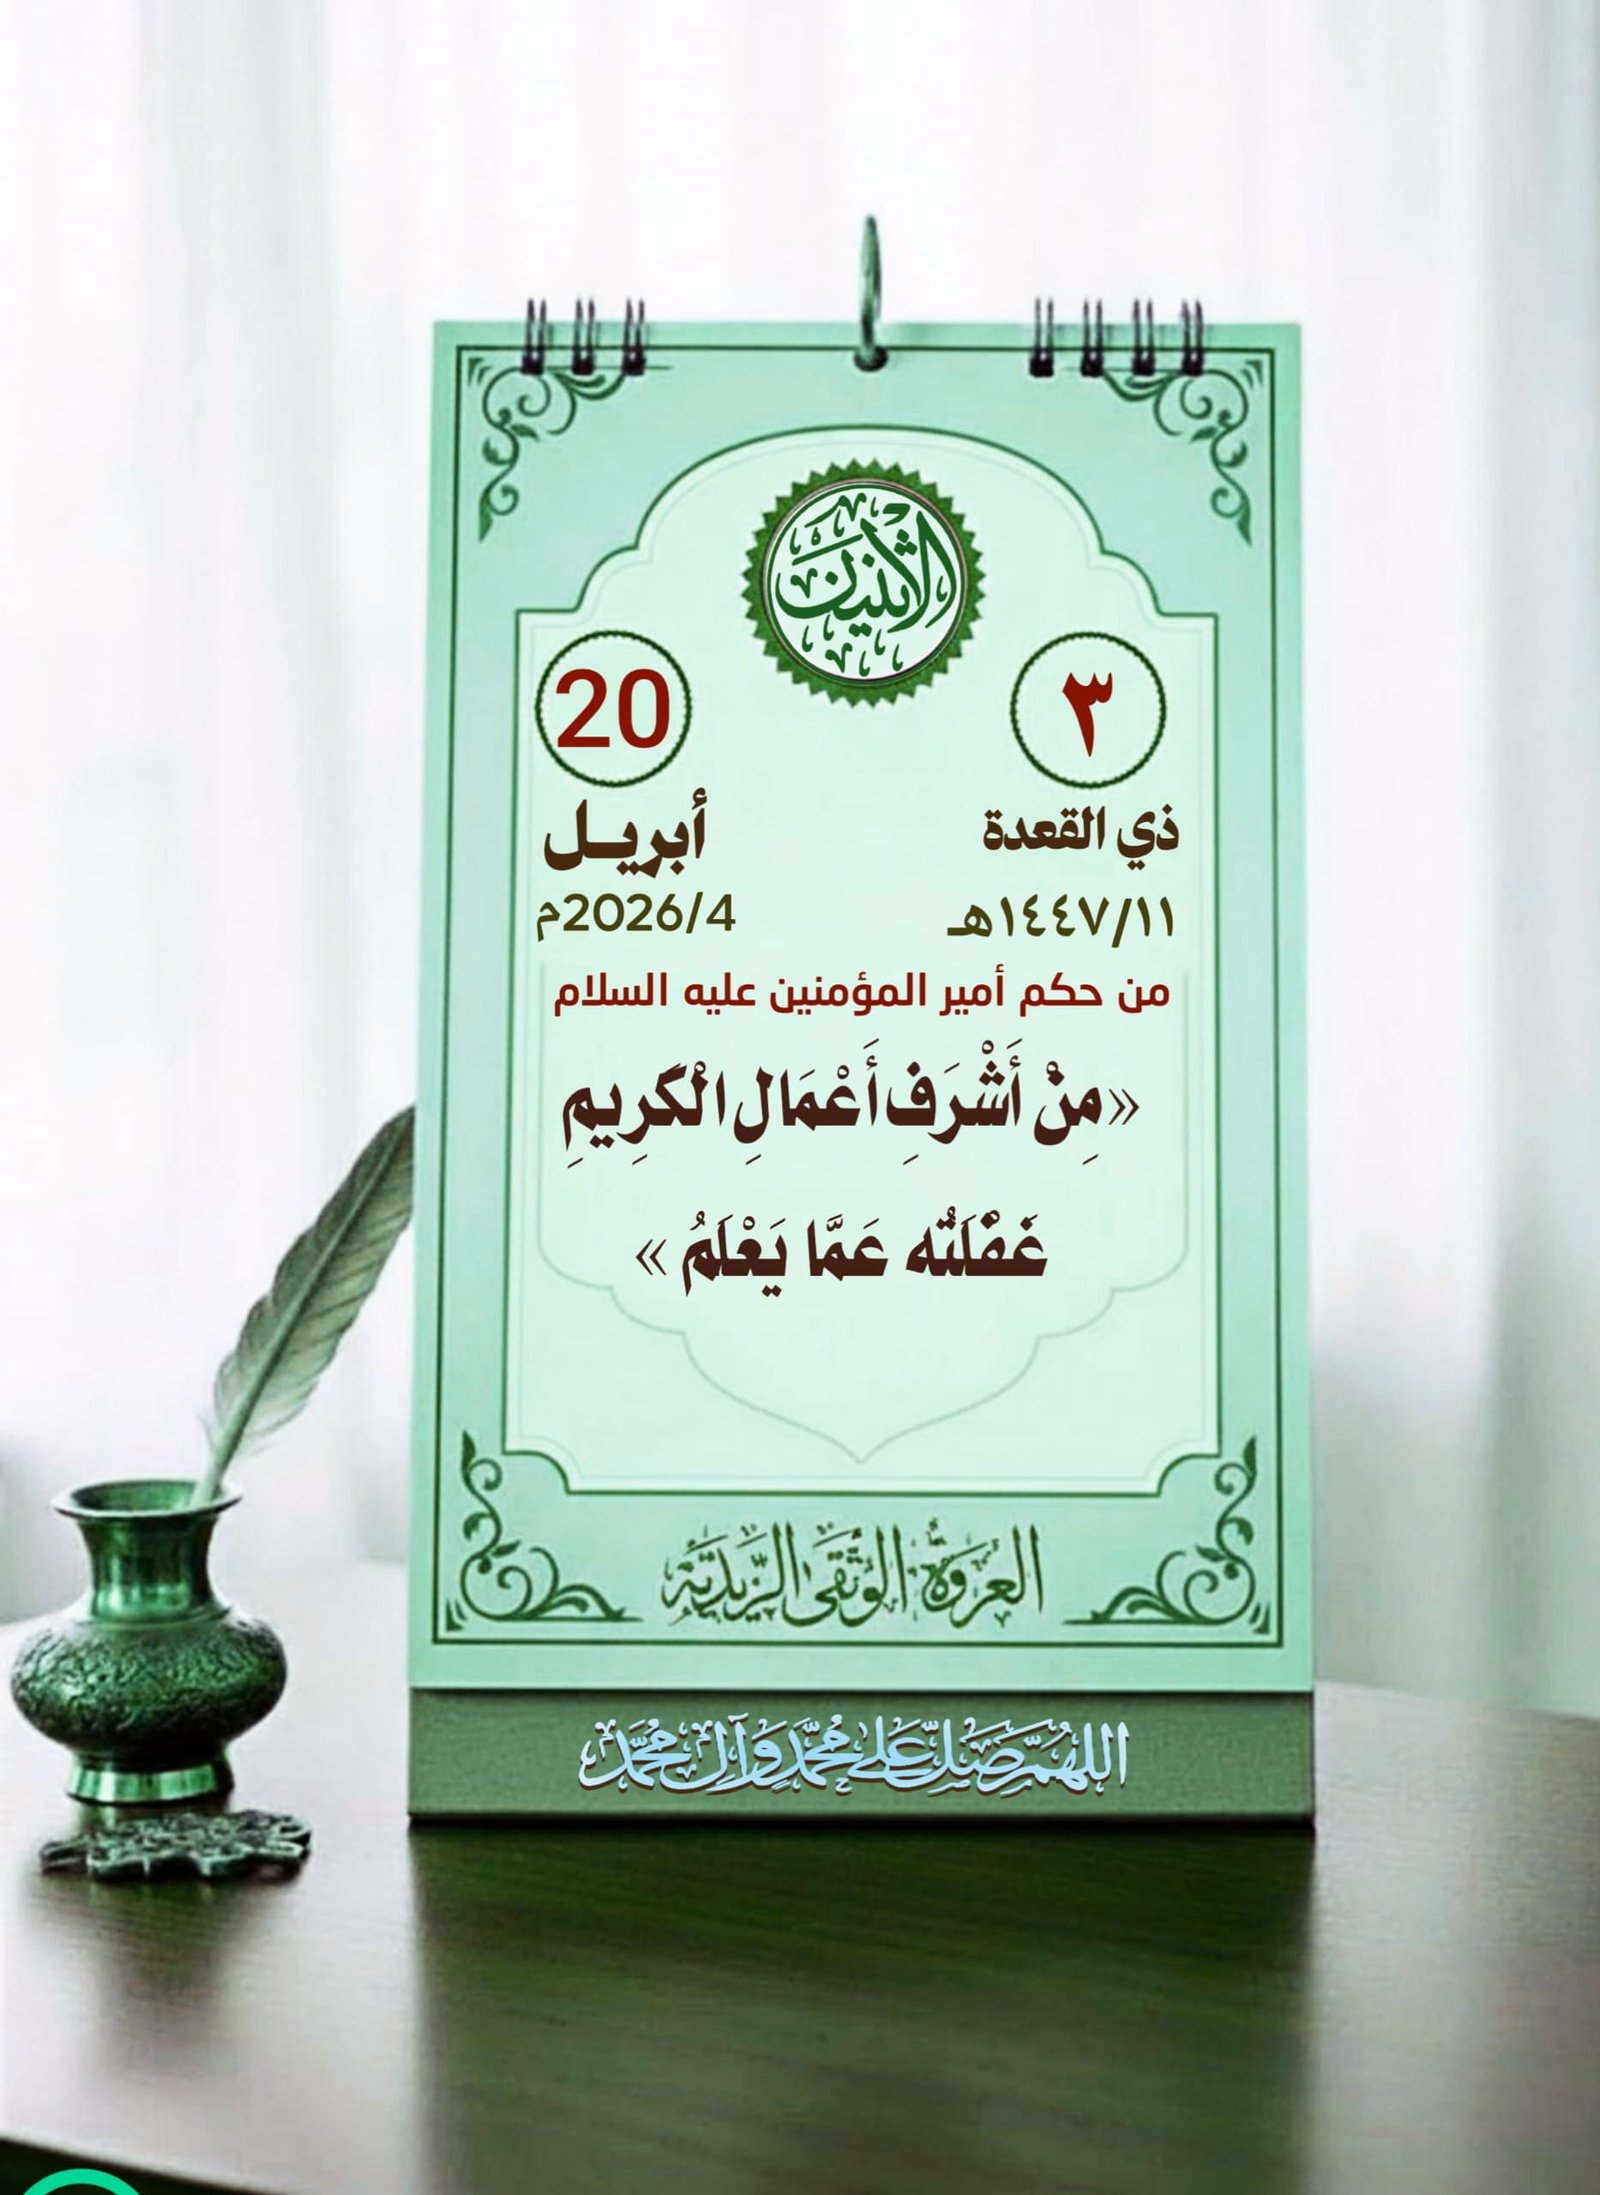 الاثنين
٣
20
ذي القعدة
أبريل
١٤٤٧/١١هـ
2026/4م
من حكم أمير المؤمنين عليه السلام
«مِنْ أَشْرَفِ أَعْمَالِ الْكَرِيمِ
غَفْلَتُه عَمَّا يَعْلَمُ »
العروة الوثقى الزيدية
اللهم صل على محمد وآل محمد